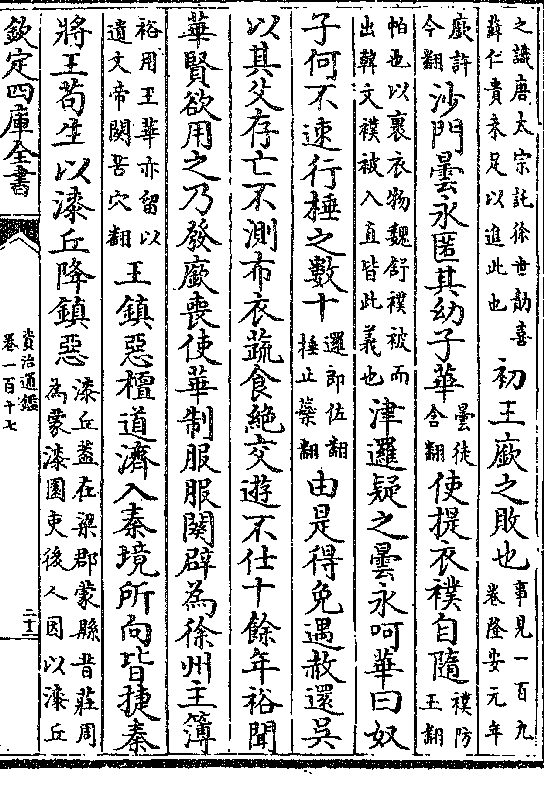 之識唐太宗託徐世勣喜
薛仁貴未足以進此也
初王廞之敗也
事見一百九
卷隆安元年
廞許
今翻
沙門曇永匿其幼子華
曇徒
含翻
使提衣襆自隨
襆防
玉翻
帕也以裹衣物魏舒襆被而
出韓文襆被入直皆此義也
津邏疑之曇永呵華曰奴
子何不速行棰之數十
邏郎佐翻
捶止橤翻
由是得免遇赦還吳
以其父存亡不測布衣蔬食絶交遊不仕十餘年裕聞
華賢欲用之乃發廞喪使華制服服闋辟為徐州主簿
裕用王華亦留以
遺文帝闋苦穴翻
王鎮惡檀道濟入秦境所向皆捷秦
將王苟生以漆丘降鎮惡
漆丘蓋在梁郡蒙縣昔莊周
為蒙漆園吏後人因以漆丘
欽定四庫全書
資治通鑑
卷一百十七